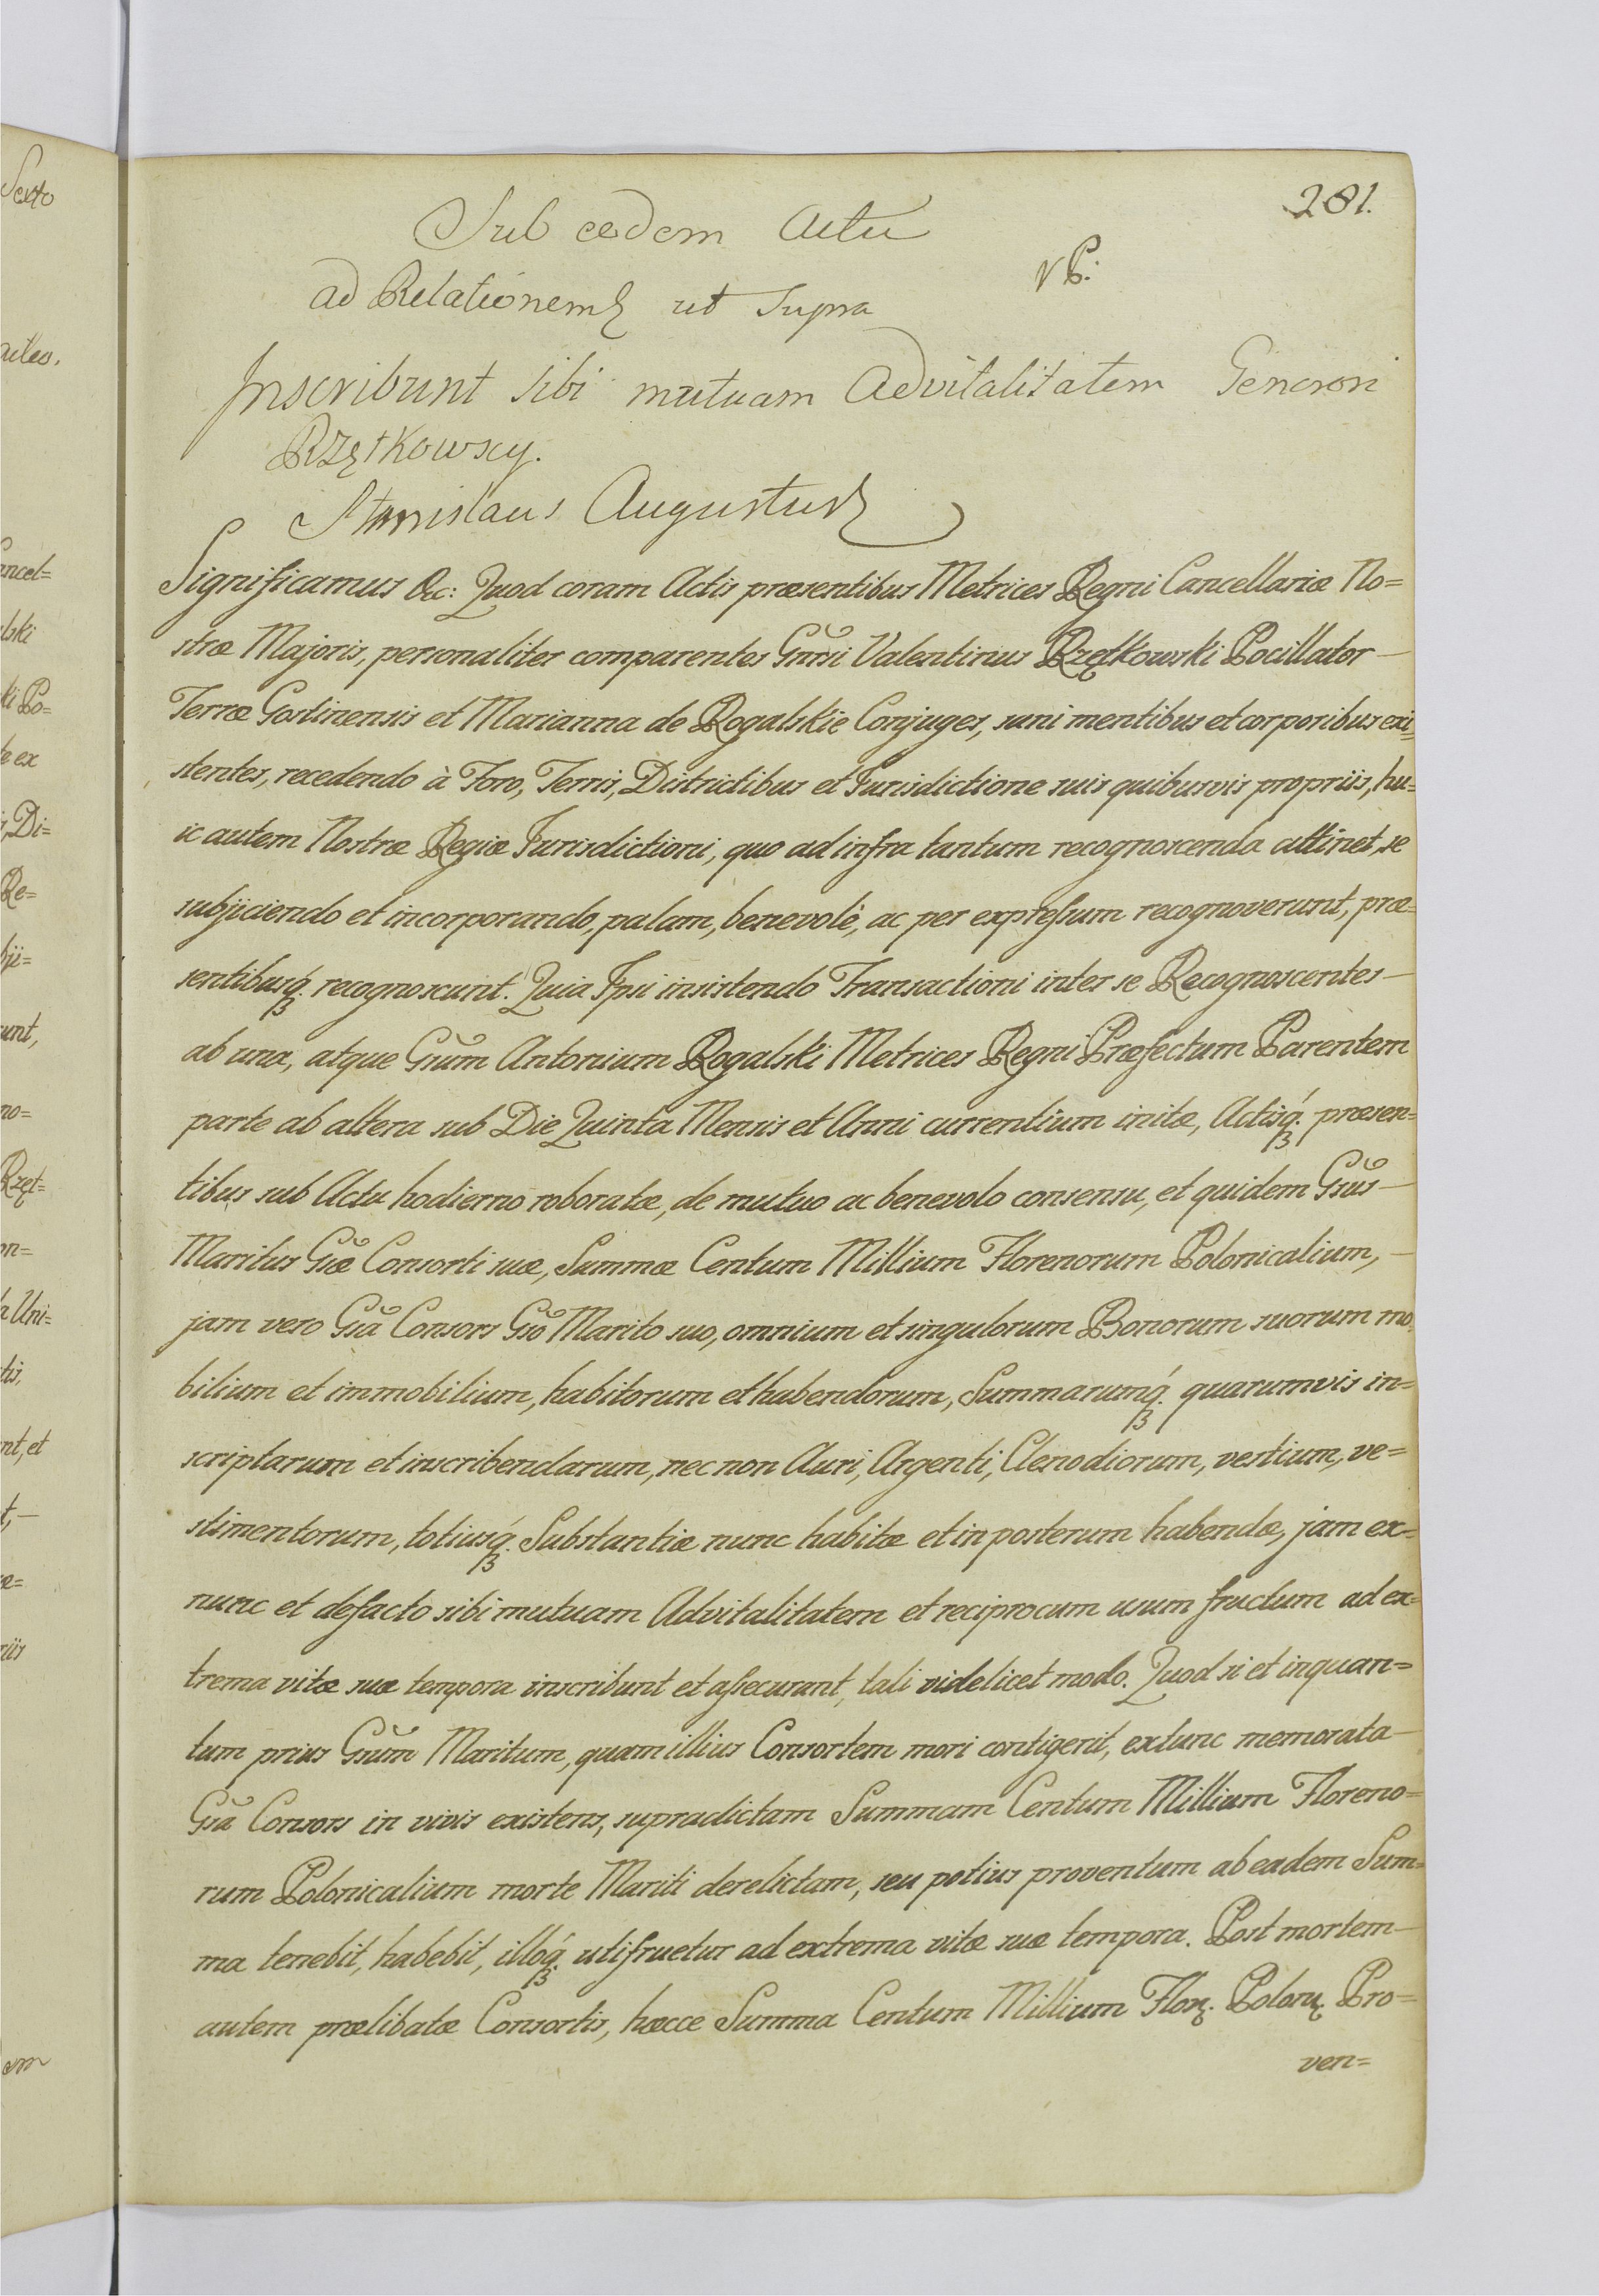 281.
Sub eodem Actu
vP.
ad Relationem ut supra
Inscribunt sibi mutuam Advitalitatem Generosi
Rzętkowscy.
Stanislaus Augustus
Significamus &c: Quod coram Actis præsentibus Metrices Regni Cancellariæ No=
stræ Majoris, personaliter comparentes Gnrsi Valentinus Rzętkowski Pocillator —
Terræ Gostinensis et Marianna de Rogalskie Conjuges, sani mentibus et corporibus exi=
stentes, recedendo à Foro, Terris, Districtibus et Jurisdictione suis quibusvis propriis, hu=
ic autem Nostræ Regiæ Jurisdictioni, quo ad infra tantum recognoscenda attinet, se
subjiciendo et incorporando, palam, benevolè, ac per expreſsum recognoverunt, præ=
sentibusq́. recognoscunt. Quia Ipsi insistendo Transactioni inter se Recognoscentes —
ab una, atque Gsũm Antonium Rogalski Metrices Regni Præfectum Parentem
parte ab altera sub Die Quinta Mensis et Anni currentium initæ, Actisq́. præsen=
tibus sub Actu hodierno roboratæ, de mutuo ac benevolo consensu, et quidem Gsũs —
Maritus Gsæ̃ Consorti suæ, Summæ Centum Millium Florenorum Polonicalium, —
jam vero Gsã Consors Gsõ Marito suo, omnium et singulorum Bonorum suorum mo=
bilium et immobilium, habitorum et habendorum, Summarumq́. quarumvis in=
scriptarum et inscribendarum, nec non Auri, Argenti, Clenodiorum, vestium, ve=
stimentorum, totiusq́. Substantiæ nunc habitæ et in posterum habendæ, jam ex=
nunc et defacto sibi mutuam Advitalitatem et reciprocum usum fructum ad ex=
trema vitæ suæ tempora inscribunt et aſsecurant, tali videlicet modo. Quod si et inquan=
tum prius Gsũm Maritum, quam illius Consortem mori contigerit, extunc memorata —
Gsã Consors in vivis existens, supradictam Summam Centum Millium Floreno=
rum Polonicalium morte Mariti derelictam, seu potius proventum ab eadem Sum=
ma tenebit, habebit, illoq́. utifruetur ad extrema vitæ suæ tempora. Post mortem —
autem prælibatæ Consortis, hæcce Summa Centum Millium Flor. Polon. Pro=
ven=